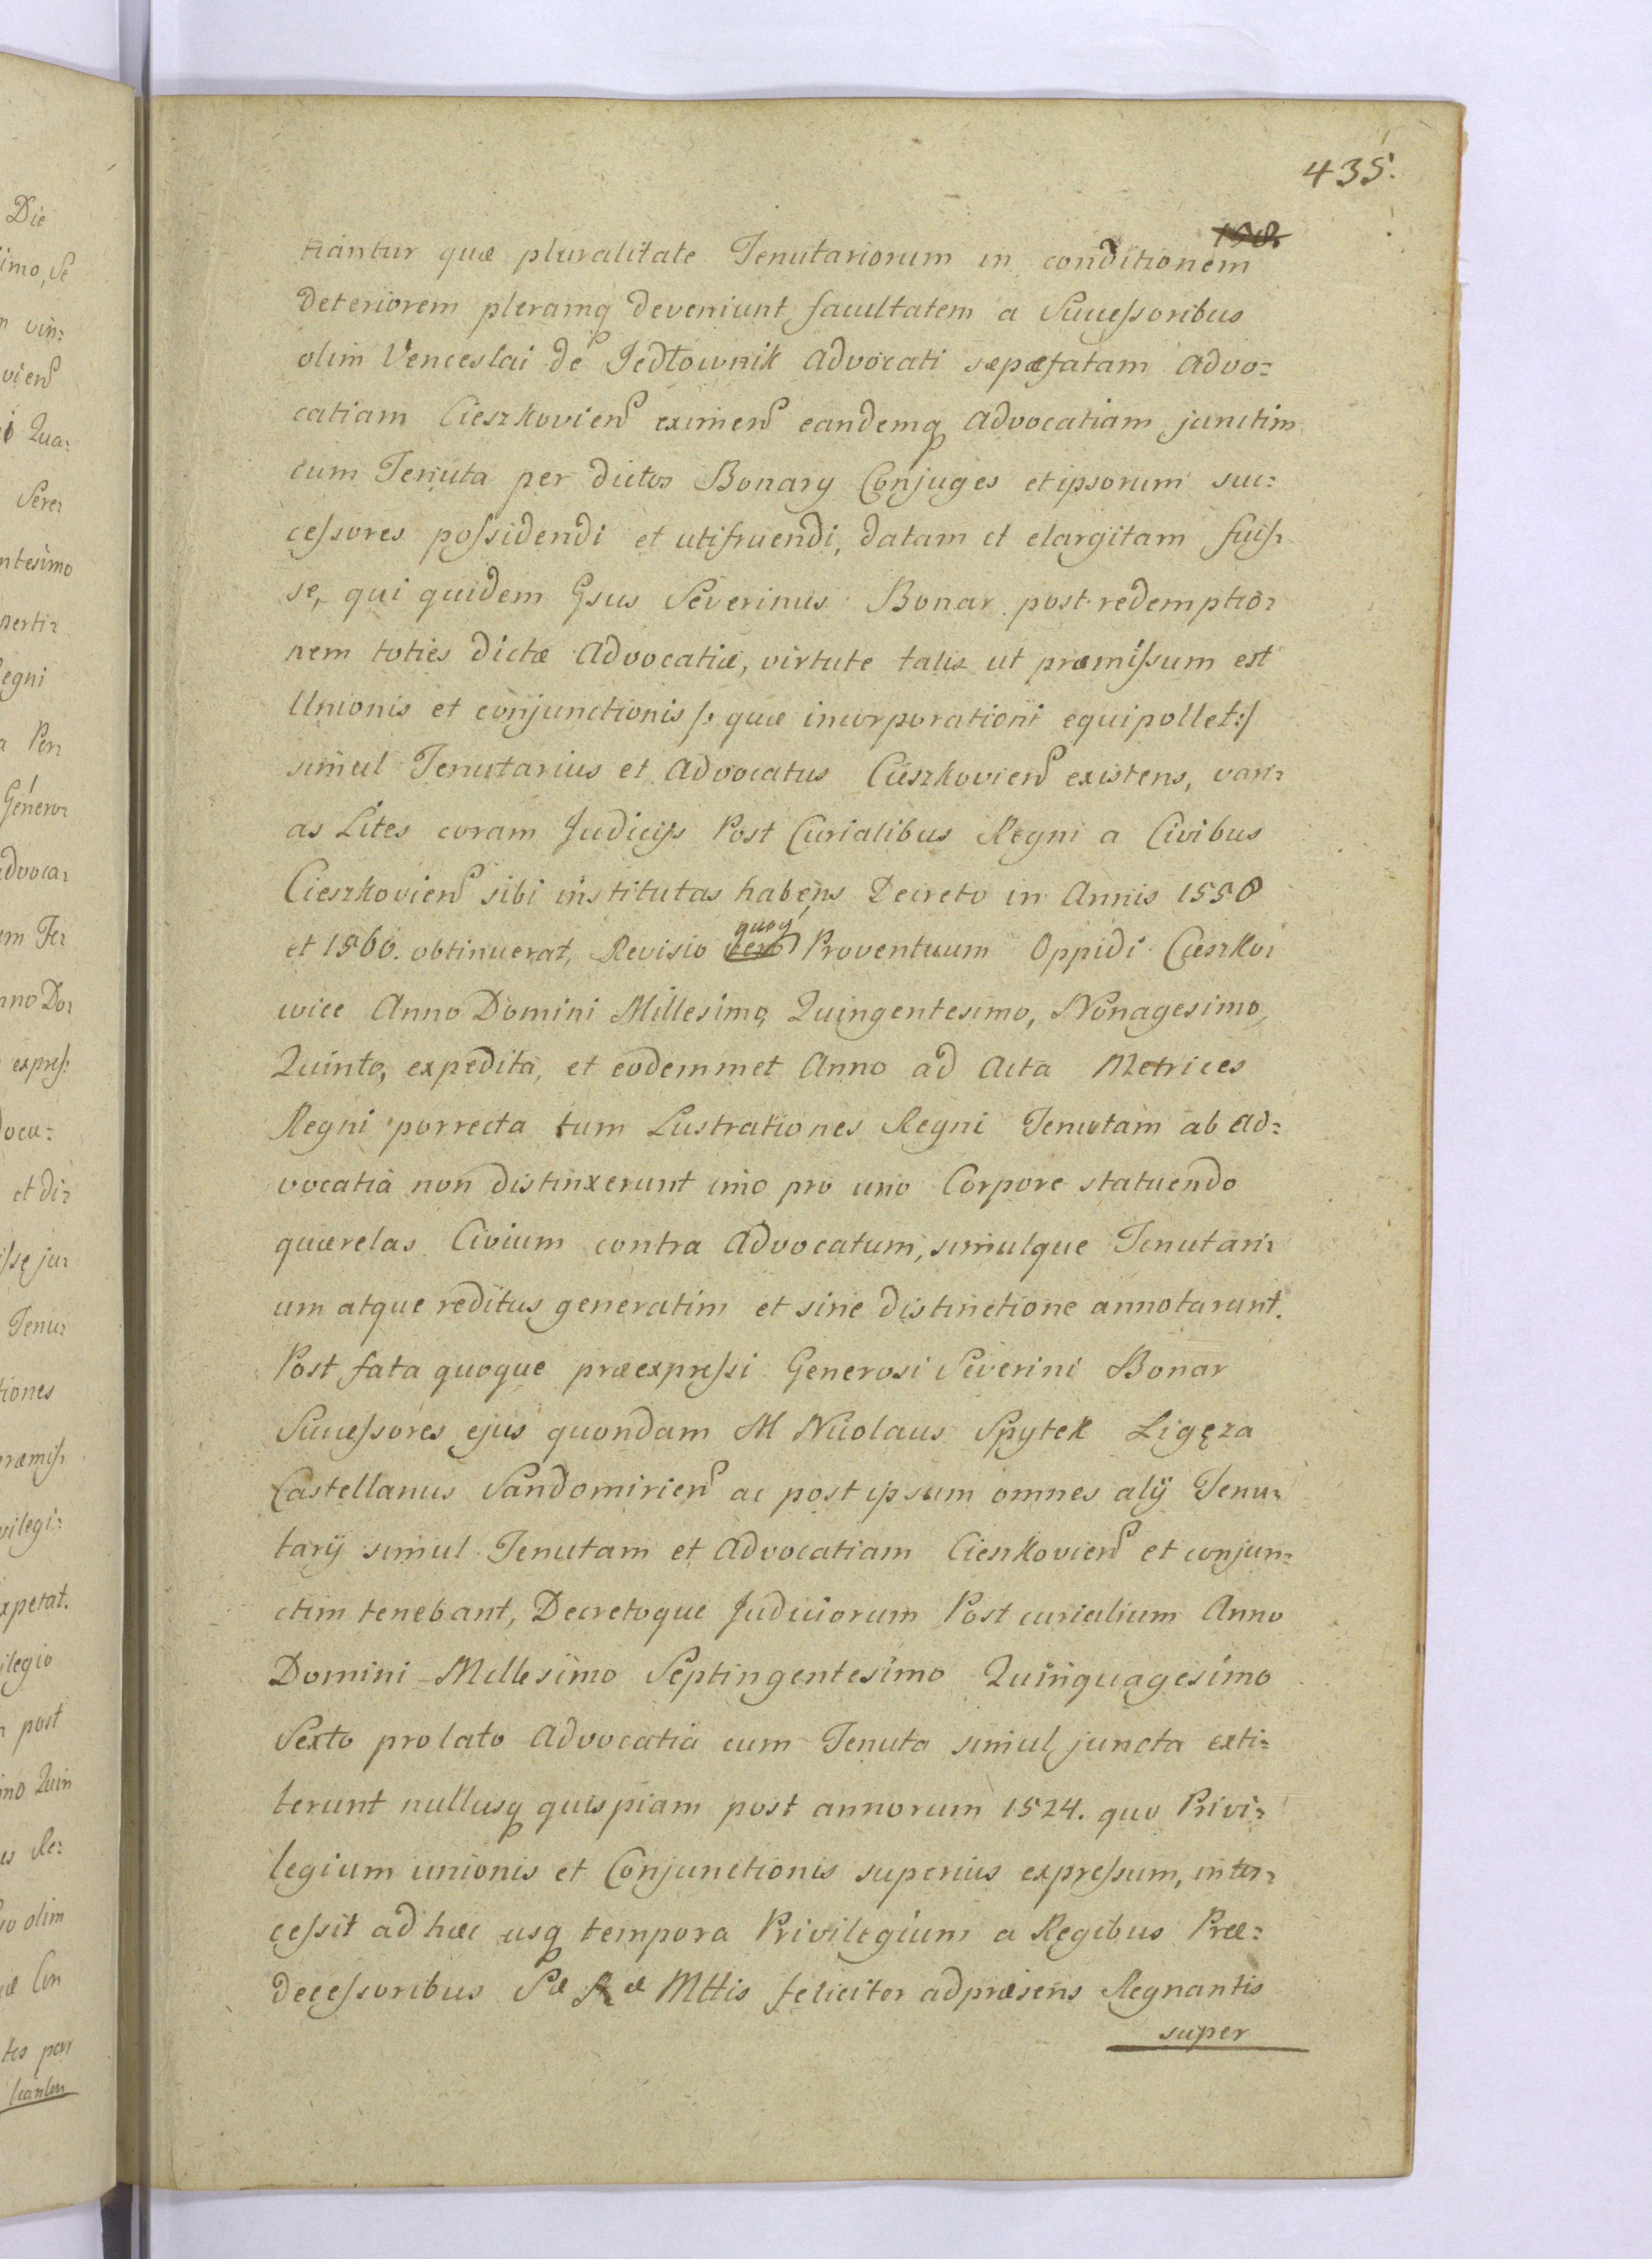 435.
tiantur quæ pluralitate Tenutariorum in conditionem
deteriorem pleramq deveniunt facultatem a Successoribus
olim Venceslai de Jedłownik Advocati sæpæfatam Advo=
catiam Cieszkovien eximen eandemq Advocatiam junctim
cum Tenuta per dictos Bonary Conjuges et ipsorum suc=
cessores possidendi et utifruendi, datam et elargitam fuis=
se, qui quidem Gsus Severinus Bonar post redemptio=
nem toties dictæ Advocatiæ, virtute talis ut præmissum est
Unionis et conjunctionis /: quæ incorporationi equipollet :/
simul Tenutarius et Advocatus Cieszkovien existens, vari=
as Lites coram Judicijs Post Curialibus Regni a Civibus
Cieszkovien sibi institutas habens Decreto in Annis 1558
et 1560. obtinuerat, Revisio quoq Proventuum Oppidi Cieszko=
wice Anno Domini Millesimo, Quingentesimo, Nonagesimo,
Quinto, expedita, et eodemmet Anno ad Acta Metrices
Regni porrecta tum Lustrationes Regni Tenutam ab Ad=
vocatia non distinxerunt imo pro uno Corpore statuendo
quærelas Civium contra Advocatum, simulque Tenutari=
um atque reditus generatim et sine distinctione annotarunt.
Post fata quoque præexpressi Generosi Severini Bonar
Successores ejus quondam M Nicolaus Spytek Ligęza
Castellanus Sandomirien ac post ipsum omnes alij Tenu=
tarij simul Tenutam et Advocatiam Cieszkovien et conjun=
ctim tenebant, Decretoque Judiciorum Post curialium Anno
Domini Millesimo Septingentesimo Quinquagesimo
Sexto prolato Advocatia cum Tenuta simul juncta exti=
terunt nullusq quispiam post annorum 1524. quo Privi=
legium unionis et Conjunctionis superius expressum, inter=
cessit ad hæc usq tempora Privilegium a Regibus Præ=
decessoribus Sæ Ræ Mttis feliciter adpræsens Regnantis
super